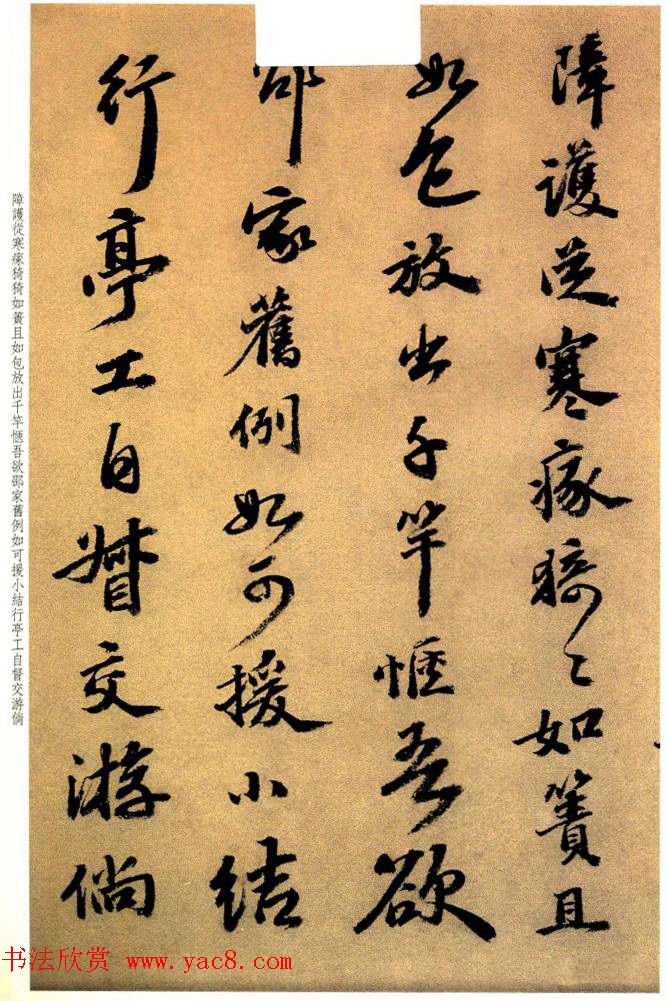 障護從寒瘃猗〻如簀且
如包放出千竿愜吾欲
邵家舊例如可援小結
行亭工自督交游倘
障護從寒瘃猗猗如簀且如包放出千竿愜吾欲邵家舊例如可援小結行亭工自督交游倘
书法欣赏 www.yac8.com